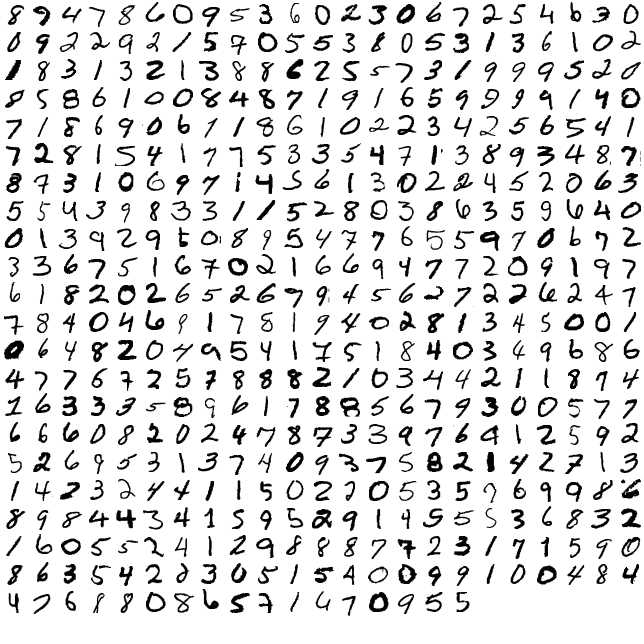 8 9 4 7 8 6 0 9 5 3 6 0 2 3 0 6 7 2 5 4 6 3 0
0 9 2 2 9 2 1 5 7 0 5 5 3 8 0 5 3 1 3 6 1 0 2
1 8 3 1 3 2 1 3 8 8 6 2 5 5 7 3 1 9 9 9 5 2 0
8 5 8 6 1 0 0 8 4 8 7 1 9 1 6 5 9 9 9 9 1 4 0
7 1 8 6 9 0 6 7 1 8 6 1 0 2 2 3 4 2 5 6 5 4 1
7 2 8 1 5 4 1 7 7 5 3 3 5 4 7 1 3 8 9 3 4 8 7
8 7 3 1 0 6 9 7 1 4 5 6 1 3 0 2 2 4 5 2 0 6 3
5 5 4 3 9 8 3 3 1 1 5 2 8 0 3 8 6 3 5 9 6 4 0
0 1 3 9 2 9 5 0 8 9 5 4 7 7 6 5 5 9 7 0 6 7 2
3 3 6 7 5 1 6 7 0 2 1 6 6 9 4 7 7 2 0 9 1 9 7
6 1 8 2 0 2 6 5 2 6 7 9 4 5 6 2 7 2 2 6 2 4 7
7 8 4 0 4 6 9 1 7 8 1 9 4 0 2 8 1 3 4 5 0 0 1
0 6 4 8 2 0 4 9 5 4 1 7 5 1 8 4 0 3 4 9 6 8 6
4 7 7 6 7 2 5 7 8 8 8 2 1 0 3 4 4 2 1 1 8 9 4
1 6 3 3 3 5 8 9 6 1 7 8 8 5 6 7 9 3 0 0 5 7 7
6 6 6 0 8 2 0 2 4 7 8 7 3 3 9 7 6 4 1 2 5 9 2
5 2 6 9 5 3 1 3 7 4 0 9 3 7 5 8 2 1 4 2 7 1 3
1 4 2 3 2 4 4 1 1 5 0 2 2 0 5 3 5 7 6 9 9 8 6
8 9 8 4 4 3 4 1 5 9 5 2 9 1 4 5 5 5 3 6 8 3 2
1 6 0 5 5 2 4 1 2 9 8 8 8 7 7 2 3 1 7 1 5 9 0
8 6 3 5 4 2 2 3 0 5 1 5 4 0 0 9 9 1 0 0 4 8 4
4 7 6 8 8 0 8 6 5 7 1 4 7 0 9 5 5